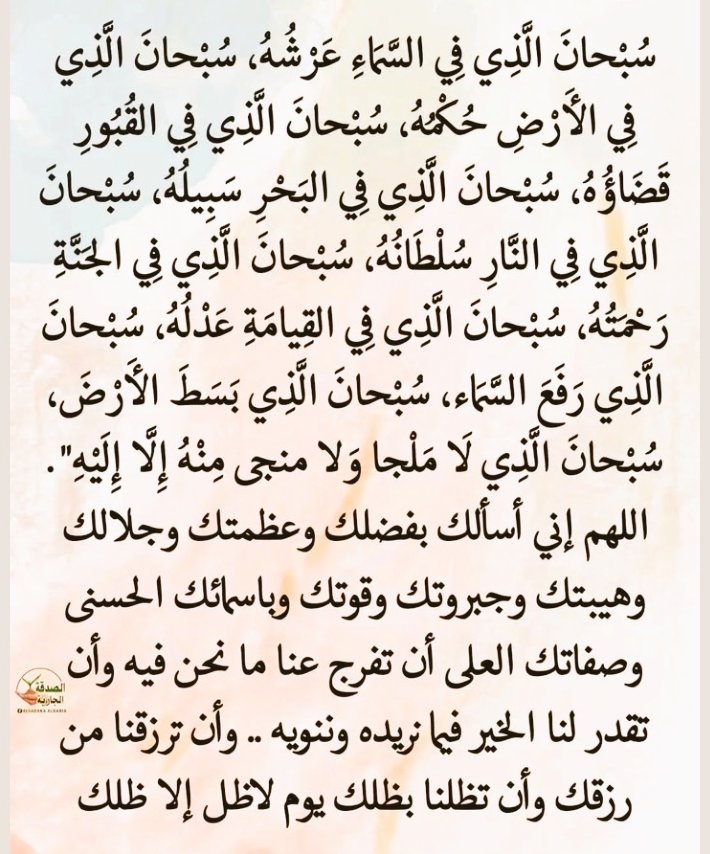 سُبْحانَ الَّذِي فِي السَّمَاءِ عَرْشُهُ، سُبْحانَ الَّذِي
فِي الأَرْضِ حُكْمُهُ، سُبْحانَ الَّذِي فِي القُبُورِ
قَضَاؤُهُ، سُبْحانَ الَّذِي فِي البَحْرِ سَبِيلُهُ، سُبْحانَ
الَّذِي فِي النَّارِ سُلْطَانُهُ، سُبْحانَ الَّذِي فِي الجَنَّةِ
رَحْمَتُهُ، سُبْحانَ الَّذِي فِي القِيامَةِ عَدْلُهُ، سُبْحانَ
الَّذِي رَفَعَ السَّمَاء، سُبْحانَ الَّذِي بَسَطَ الأَرْضَ،
سُبْحانَ الَّذِي لَا مَلْجا وَلا منجى مِنْهُ إِلَّا إِلَيْهِ".
اللهم إني أسألك بفضلك وعظمتك وجلالك
وهيبتك وجبروتك وقوتك وباسمائك الحسنى
وصفاتك العلى أن تفرج عنا ما نحن فيه وأن
تقدر لنا الخير فيما نريده وننويه .. وأن ترزقنا من
رزقك وأن تظلنا بظلك يوم لاظل إلا ظلك
الصدقة
الجارية